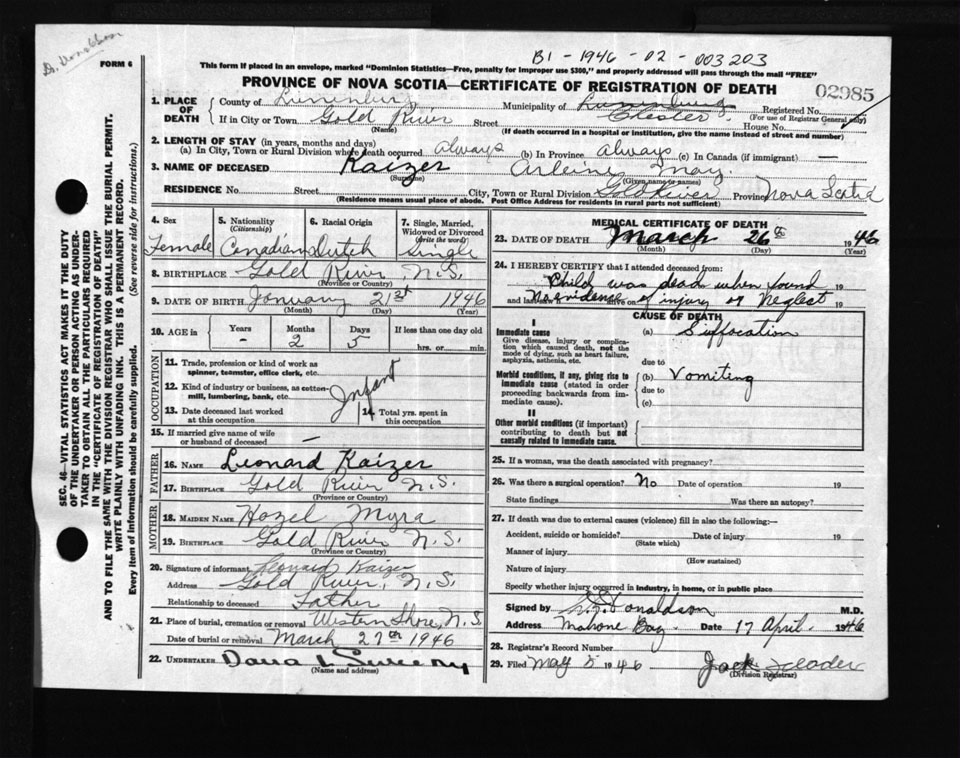 Dr. Donaldson
B1 - 1946 - 02 - 003203
FORM 6
This form if placed in an envelope, marked "Dominion Statistics—Free, penalty for improper use $300," and properly addressed will pass through the mail "FREE"
PROVINCE OF NOVA SCOTIA—CERTIFICATE OF REGISTRATION OF DEATH
02985
1. PLACE OF DEATH County of Lunenburg Municipality of Lunenburg Chester Registered No.
(For use of Registrar General only)
If in City or Town Gold River Street House No.
(Name) (If death occurred in a hospital or institution, give its name instead of street and number)
2. LENGTH OF STAY (in years, months and days)
(a) In City, Town or Rural Division where death occurred always (b) In Province always (c) In Canada (if immigrant) —
3. NAME OF DECEASED Kaizer Arleine May.
(Surname) (Given name or names)
RESIDENCE No. Street City, Town or Rural Division Gold River Province Nova Scotia
(Residence means usual place of abode. Post Office Address for residents in rural parts not sufficient)
4. Sex Female
5. Nationality (Citizenship) Canadian
6. Racial Origin Dutch
7. Single, Married, Widowed or Divorced (write the word) Single
8. BIRTHPLACE Gold River N.S.
(Province or Country)
9. DATE OF BIRTH January 21st 1946
(Month) (Day) (Year)
10. AGE in Years Months Days If less than one day old
- 2 5 hrs. or min.
OCCUPATION
11. Trade, profession or kind of work as spinner, teamster, office clerk, etc.
12. Kind of industry or business, as cotton-mill, lumbering, bank, etc.
Infant
13. Date deceased last worked at this occupation
14. Total yrs. spent in this occupation
15. If married give name of wife or husband of deceased —
FATHER
16. NAME Leonard Kaizer
17. BIRTHPLACE Gold River N.S.
(Province or Country)
MOTHER
18. MAIDEN NAME Hazel Myra
19. BIRTHPLACE Gold River N.S.
(Province or Country)
20. Signature of informant Leonard Kaizer
Address Gold River, N.S.
Relationship to deceased Father
21. Place of burial, cremation or removal Western Shore, N.S.
Date of burial or removal March 27th 1946
22. UNDERTAKER Dana L Sweeny
(Name and address)
MEDICAL CERTIFICATE OF DEATH
23. DATE OF DEATH March 26th 1946
(Month) (Day) (Year)
24. I HEREBY CERTIFY that I attended deceased from:
Child was dead when found 19
and last saw alive on 19
No evidence of injury or Neglect
CAUSE OF DEATH
I
Immediate cause (a) Suffocation
Give disease, injury or complication which caused death, not the mode of dying, such as heart failure, asphyxia, asthenia, etc.
due to
Morbid conditions, if any, giving rise to immediate cause (stated in order proceeding backwards from immediate cause).
(b) Vomiting
due to
(c)
II
Other morbid conditions (if important) contributing to death but not causally related to immediate cause.
25. If a woman, was the death associated with pregnancy?
26. Was there a surgical operation? No Date of operation 19
State findings Was there an autopsy?
27. If death was due to external causes (violence) fill in also the following:—
Accident, suicide or homicide? Date of injury 19
(State which)
Manner of injury
(How sustained)
Nature of injury
Specify whether injury occurred in industry, in home, or in public place
Signed by Donaldson M.D.
Address Mahone Bay Date 17 April. 1946
28. Registrar's Record Number
29. Filed May 5 1946 Jack
(Division Registrar)
SEC. 46—VITAL STATISTICS ACT MAKES IT THE DUTY
OF THE UNDERTAKER OR PERSON ACTING AS UNDER-
TAKER TO OBTAIN ALL THE PARTICULARS REQUIRED
IN THE "CERTIFICATE OF REGISTRATION OF DEATH"
AND TO FILE THE SAME WITH THE DIVISION REGISTRAR WHO SHALL ISSUE THE BURIAL PERMIT.
WRITE PLAINLY WITH UNFADING INK. THIS IS A PERMANENT RECORD.
Every item of information should be carefully supplied. (See reverse side for instructions.)